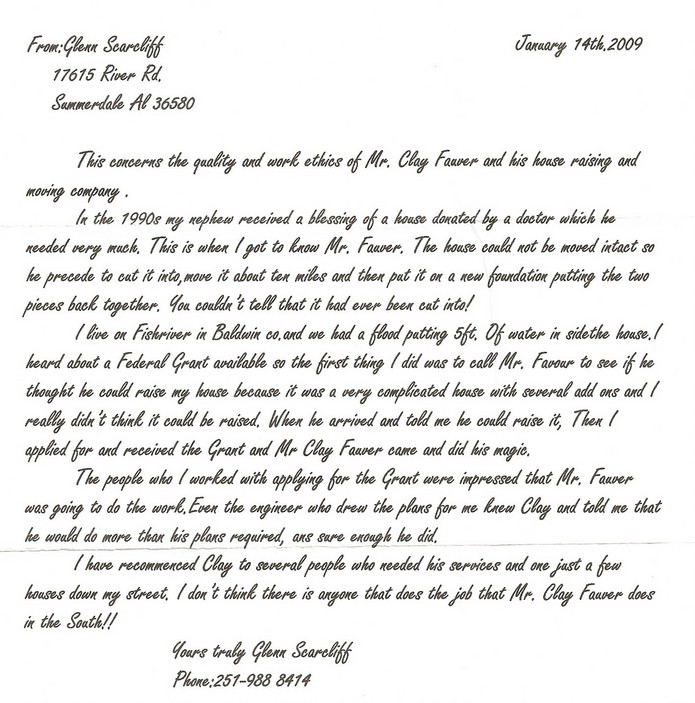 From:Glenn Scarcliff January 14th.2009
17615 River Rd.
Summerdale Al 36580
This concerns the quality and work ethics of Mr. Clay Fauver and his house raising and
moving company .
In the 1990s my nephew received a blessing of a house donated by a doctor which he
needed very much. This is when I got to know Mr. Fauver. The house could not be moved intact so
he precede to cut it into,move it about ten miles and then put it on a new foundation putting the two
pieces back together. You couldn't tell that it had ever been cut into!
I live on Fishriver in Baldwin co.and we had a flood putting 5ft. Of water in sidethe house.I
heard about a Federal Grant available so the first thing I did was to call Mr. Favour to see if he
thought he could raise my house because it was a very complicated house with several add ons and I
really didn't think it could be raised. When he arrived and told me he could raise it, Then I
applied for and received the Grant and Mr Clay Fauver came and did his magic.
The people who I worked with applying for the Grant were impressed that Mr. Fauver
was going to do the work.Even the engineer who drew the plans for me knew Clay and told me that
he would do more than his plans required, ans sure enough he did.
I have recommenced Clay to several people who needed his services and one just a few
houses down my street. I don't think there is anyone that does the job that Mr. Clay Fauver does
in the South!!
Yours truly Glenn Scarcliff
Phone:251-988 8414